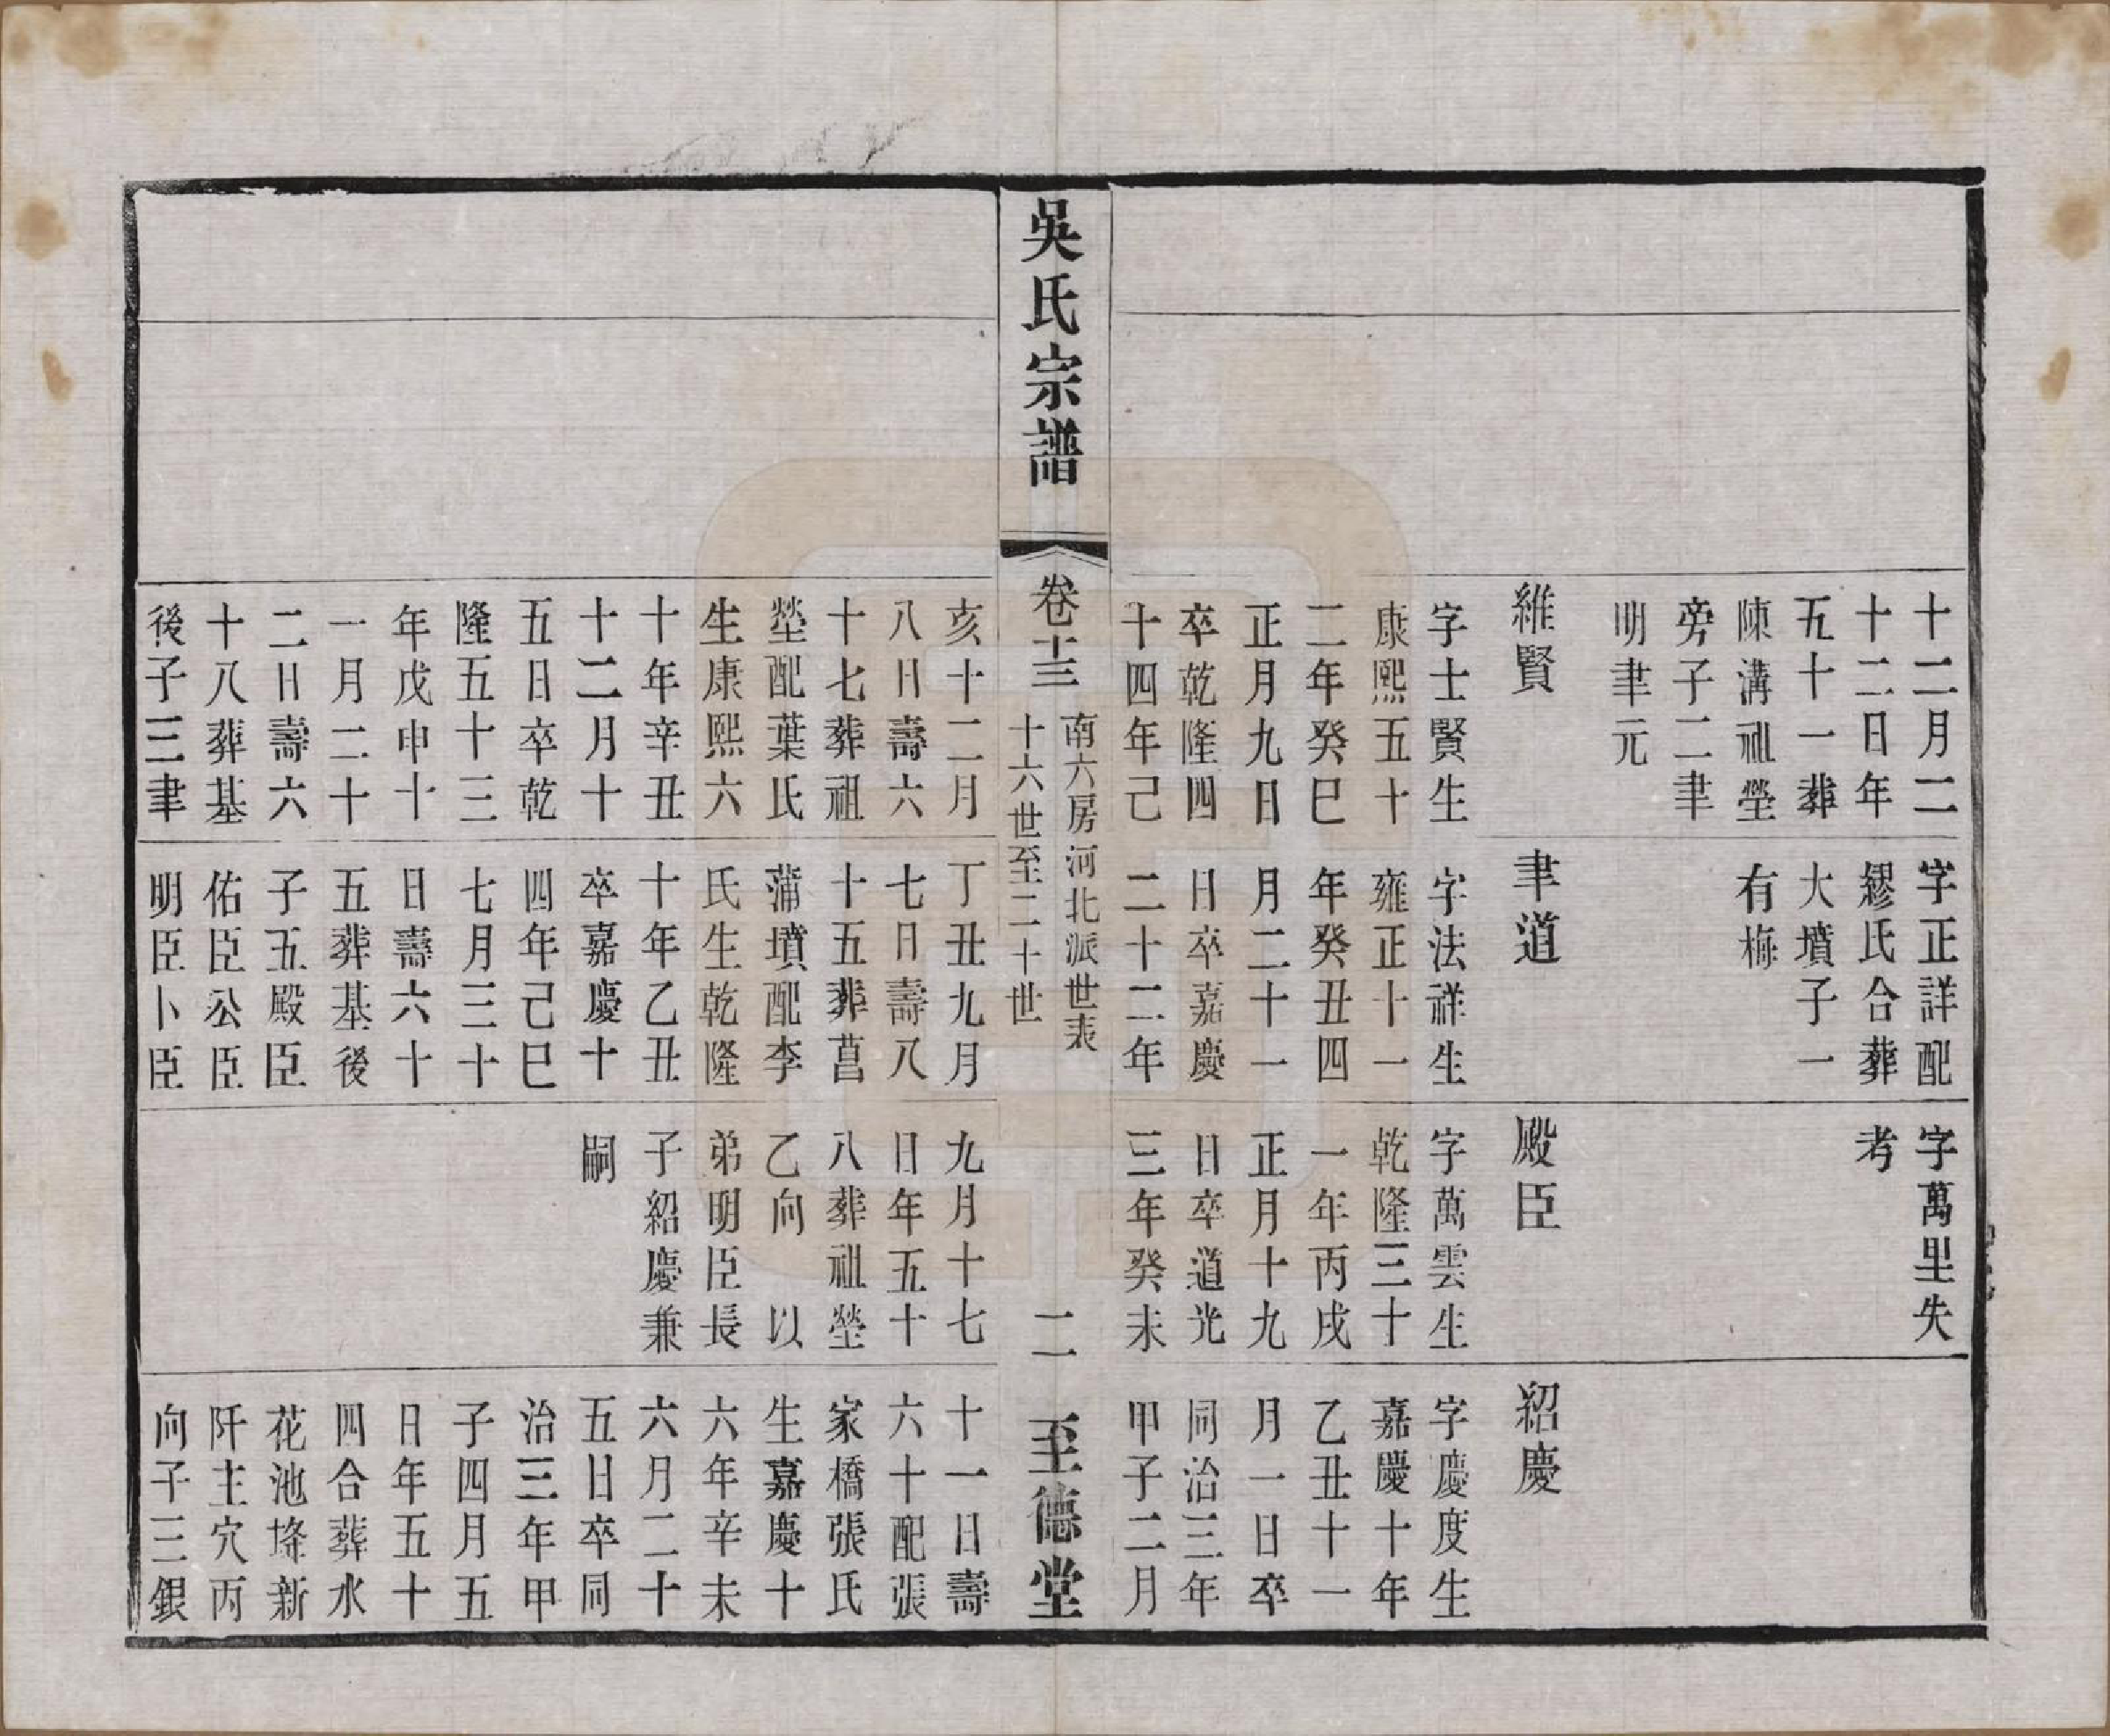 十二月二
十二日年
五十一葬
陳溝祖塋
旁子二聿
明聿元
維賢
字士賢生
康熙五十
二年癸巳
正月九日
卒乾隆四
十四年己
字正詳配
繆氏合葬
大墳子一
有梅
聿道
字法祥生
雍正十一
年癸丑四
月二十一
日卒嘉慶
二十二年
字萬里失
考
殿臣
字萬雲生
乾隆三十
一年丙戌
正月十九
日卒道光
三年癸未
紹慶
字慶度生
嘉慶十年
乙丑十一
月一日卒
同治三年
甲子二月
吳氏宗譜
卷十三
南六房河北派世表
十六世至二十世
二
至德堂
亥十二月
八日壽六
十七葬祖
塋配葉氏
生康熙六
十年辛丑
十二月十
五日卒乾
隆五十三
年戊申十
一月二十
二日壽六
十八葬基
後子三聿
丁丑九月
七日壽八
十五葬菖
蒲墳配李
氏生乾隆
十年乙丑
卒嘉慶十
四年己巳
七月三十
日壽六十
五葬基後
子五殿臣
佑臣公臣
明臣卜臣
九月十七
日年五十
八葬祖塋
乙向 以
弟明臣長
子紹慶兼
嗣
十一日壽
六十配張
家橋張氏
生嘉慶十
六年辛未
六月二十
五日卒同
治三年甲
子四月五
日年五十
四合葬水
花池墶新
阡主穴丙
向子三銀